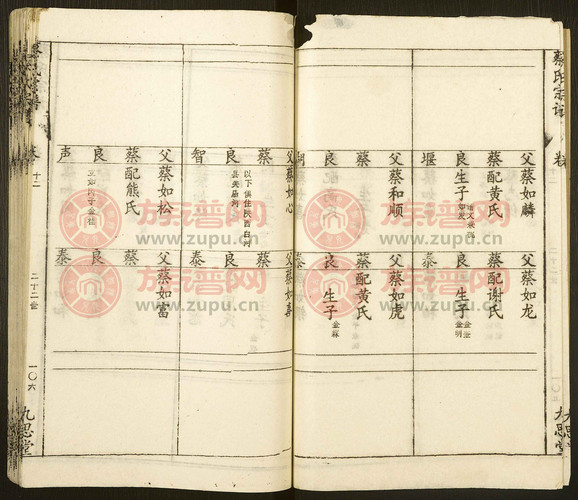 蔡氏宗谱
九思堂
父蔡如麟
蔡配黄氏
良生子
堰
父蔡和顺
蔡
良
父蔡如心
蔡
良
智
以下俱住陕西白河
父蔡如松
蔡配熊氏
良
声
父蔡如龙
蔡配谢氏
良生子
金明
泰
父蔡如虎
蔡配黄氏
良生子
泰
父蔡如喜
蔡
良
泰
父蔡如富
蔡
良
泰
十二
二十二世
一〇六
九思堂
族谱网
www.zupu.cn
族谱网
www.zupu.cn
族谱网
www.zupu.cn
族谱网
www.zupu.cn